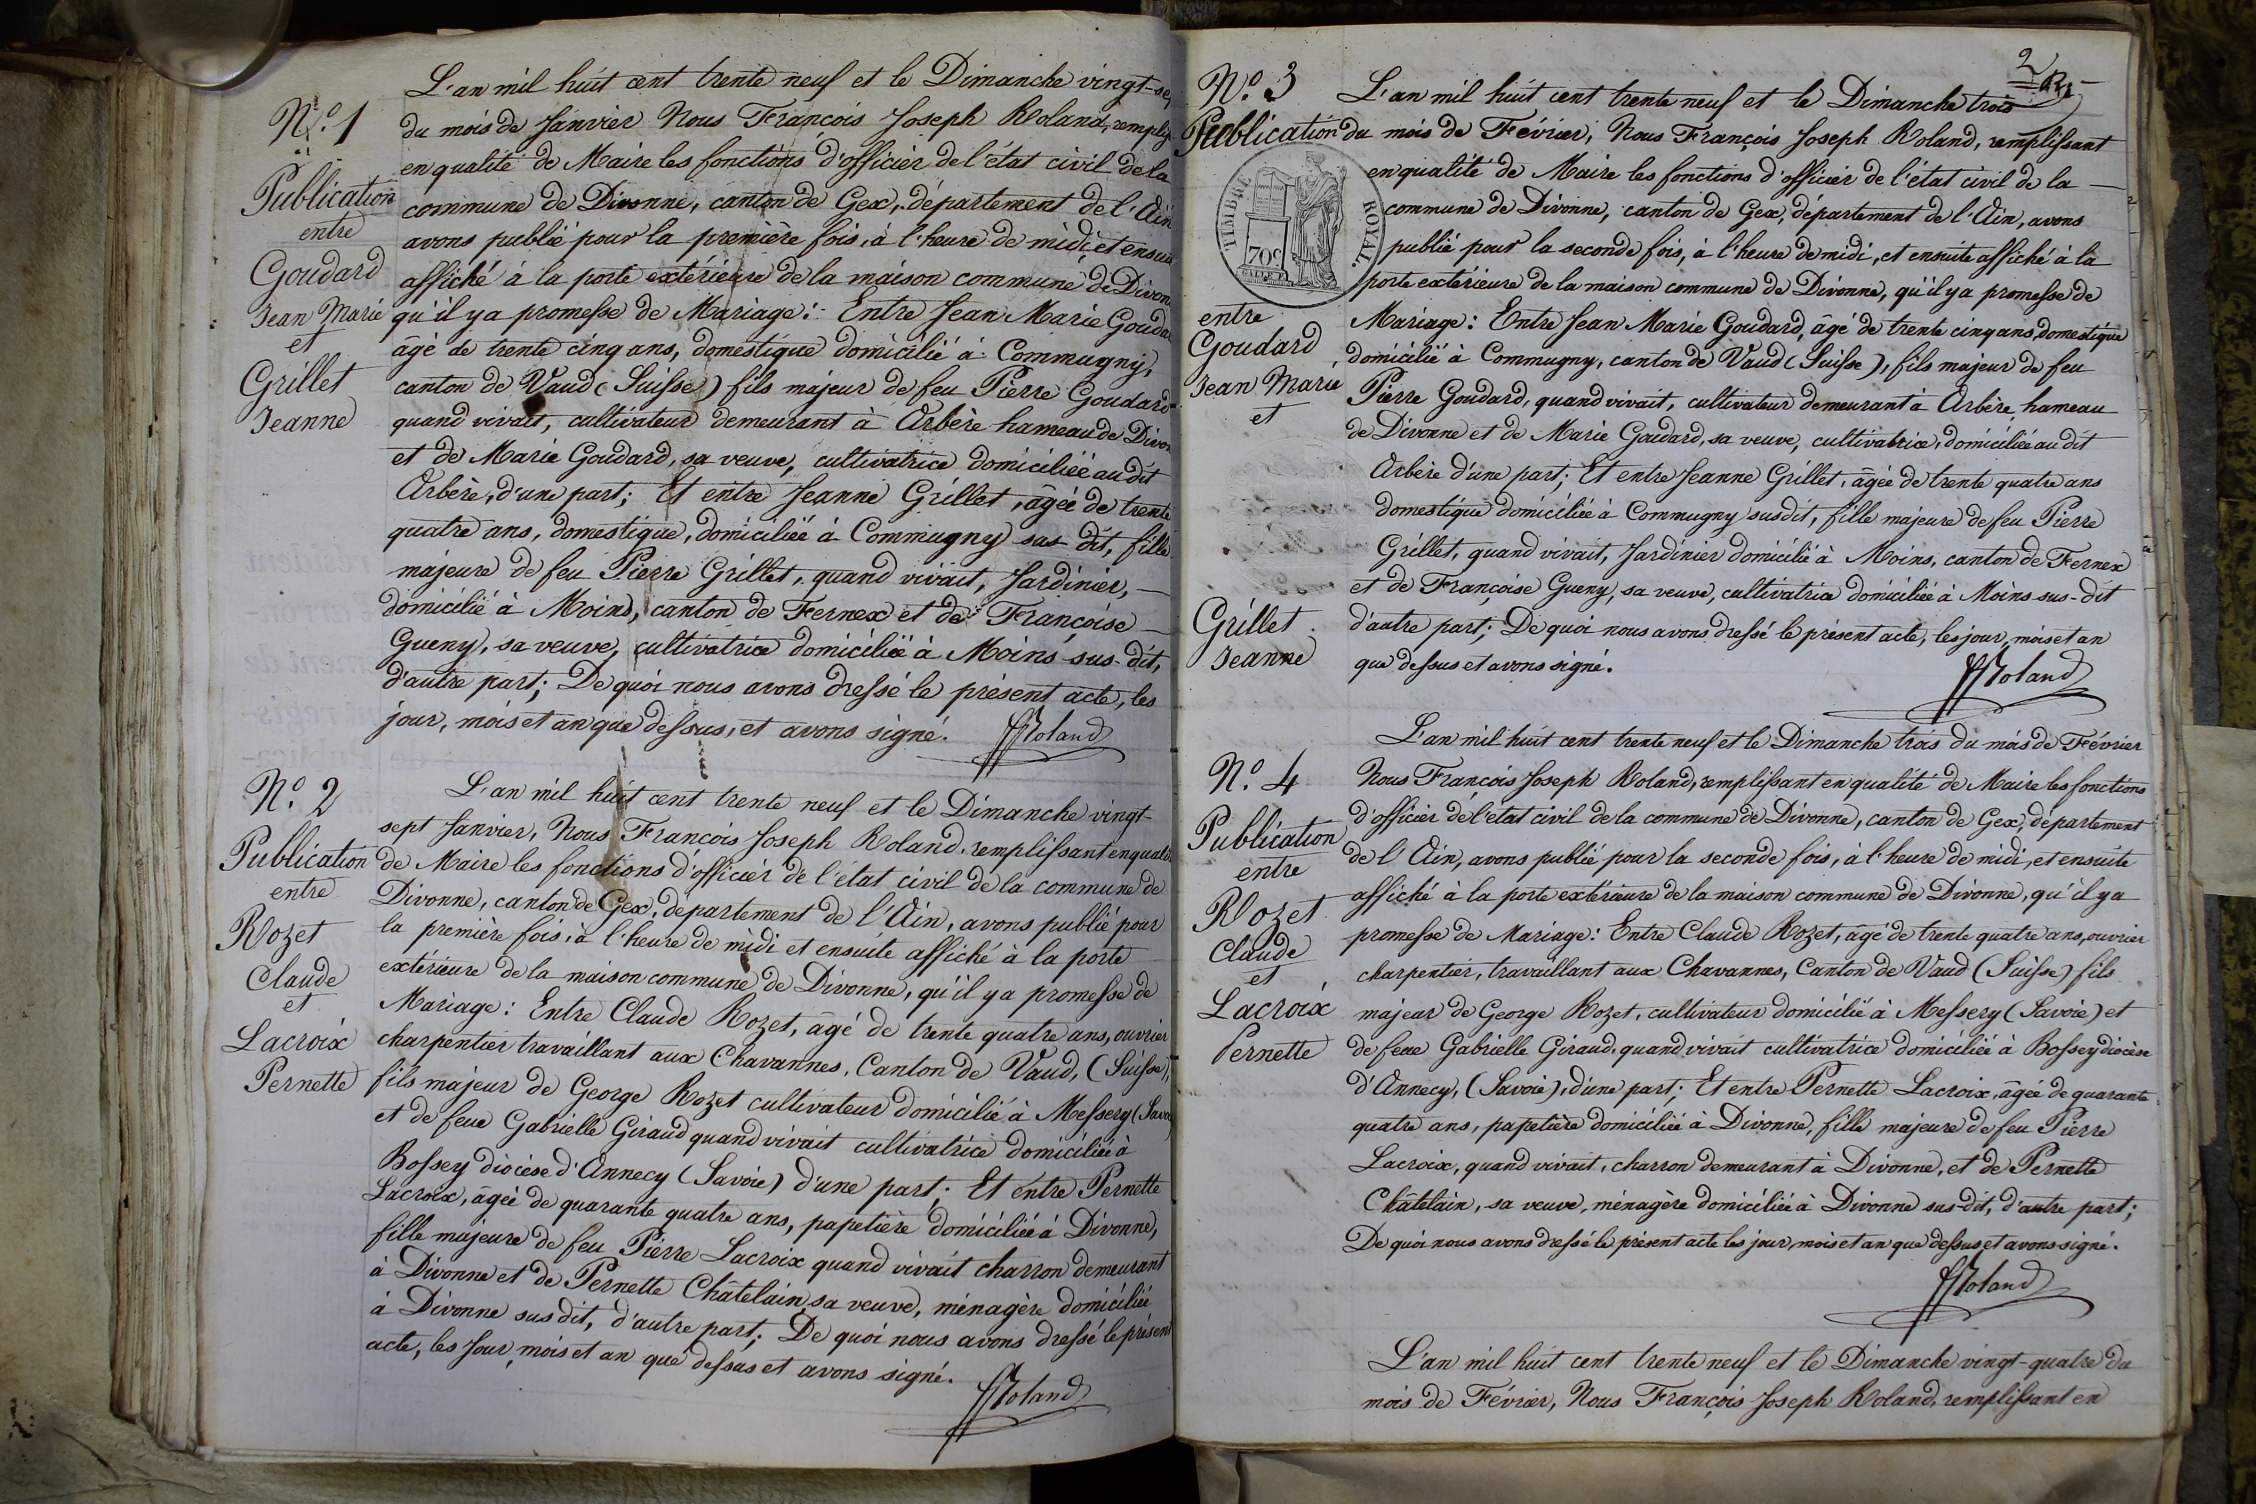 L'an mil huit cent trente neuf et le Dimanche vingt-sep
N.º 1
du mois de Janvier Nous François Joseph Roland, remplis
en qualité de Maire les fonctions d'officier de l'état civil de la
Publication
commune de Divonne, canton de Gex, département de l'Ain
entre
avons publié pour la première fois, à l'heure de midi, et ensui
Goudard
affiché à la porte extérieure de la maison commune de Divon
Jean Marie
qu'il y a promesse de Mariage: Entre Jean Marie Goudar
et
âgé de trente cinq ans, domestique domicilié à Commugny,
Grillet
canton de Vaud (Suisse) fils majeur de feu Pierre Goudard
Jeanne
quand vivait, cultivateur demeurant à Arbère hameau de Divon
et de Marie Goudard, sa veuve, cultivatrice domiciliée au dit
Arbère, d'une part; Et entre Jeanne Grillet, âgée de trente
quatre ans, domestique, domiciliée à Commugny sus dit, fille
majeure de feu Pierre Grillet, quand vivait, Jardinier,
domicilié à Moins, canton de Fernex et de Françoise
Gueny, sa veuve, cultivatrice domiciliée à Moins sus-dit,
d'autre part; De quoi nous avons dressé le présent acte, les
jour, mois et an que dessus, et avons signé.
Roland
N.º 2
L'an mil huit cent trente neuf et le Dimanche vingt-
sept Janvier, Nous François Joseph Roland, remplissant en qualité
Publication
de Maire les fonctions d'officier de l'état civil de la commune de
entre
Divonne, canton de Gex, département de l'Ain, avons publié pour
Rozet
la première fois, à l'heure de midi et ensuite affiché à la porte
Claude
extérieure de la maison commune de Divonne, qu'il y a promesse de
et
Mariage: Entre Claude Rozet, âgé de trente quatre ans, ouvrier
Lacroix
charpentier travaillant aux Chavannes, Canton de Vaud, (Suisse),
Pernette
fils majeur de George Rozet cultivateur domicilié à Messery (Savoie)
et de feue Gabrielle Giraud quand vivait cultivatrice domiciliée à
Bossey diocèse d'Annecy (Savoie) d'une part; Et entre Pernette
Lacroix, âgée de quarante quatre ans, papetière domiciliée à Divonne,
fille majeure de feu Pierre Lacroix quand vivait charron demeurant
à Divonne et de Pernette Châtelain, sa veuve, ménagère domiciliée
à Divonne sus dit, d'autre part; De quoi nous avons dressé le présent
acte, les Jour, mois et an que dessus et avons signé.
Roland
2
N.º 3
L'an mil huit cent trente neuf et le Dimanche trois
Publication
du mois de Février, Nous François Joseph Roland, remplissant
en qualité de Maire les fonctions d'officier de l'état civil de la
TIMBRE ROYAL.
70c
commune de Divonne, canton de Gex, département de l'Ain, avons
publié pour la seconde fois, à l'heure de midi, et ensuite affiché à la
porte extérieure de la maison commune de Divonne, qu'il y a promesse de
entre
Mariage: Entre Jean Marie Goudard, âgé de trente cinq ans, domestique
Goudard
domicilié à Commugny, canton de Vaud (Suisse), fils majeur de feu
Jean Marie
Pierre Goudard, quand vivait, cultivateur demeurant à Arbère, hameau
et
de Divonne et de Marie Goudard, sa veuve, cultivatrice, domiciliée au dit
Arbère d'une part; Et entre Jeanne Grillet, âgée de trente quatre ans
domestique domiciliée à Commugny susdit, fille majeure de feu Pierre
Grillet, quand vivait, Jardinier domicilié à Moins, canton de Fernex
et de Françoise Gueny, sa veuve, cultivatrice domiciliée à Moins sus-dit
Grillet
d'autre part; De quoi nous avons dressé le présent acte, les jour, mois et an
Jeanne
que dessus et avons signé.
Roland
L'an mil huit cent trente neuf et le Dimanche trois du mois de Février
N.º 4
Nous François Joseph Roland, remplissant en qualité de Maire les fonctions
Publication
d'officier de l'état civil de la commune de Divonne, canton de Gex, département
entre
de l'Ain, avons publié pour la seconde fois, à l'heure de midi, et ensuite
Rozet
affiché à la porte extérieure de la maison commune de Divonne, qu'il y a
Claude
promesse de Mariage: Entre Claude Rozet, âgé de trente quatre ans, ouvrier
et
charpentier, travaillant aux Chavannes, Canton de Vaud (Suisse) fils
Lacroix
majeur de George Rozet, cultivateur domicilié à Messery (Savoie) et
Pernette
de feue Gabrielle Giraud, quand vivait cultivatrice domiciliée à Bossey diocèse
d'Annecy, (Savoie), d'une part; Et entre Pernette Lacroix, âgée de quarante
quatre ans, papetière domiciliée à Divonne, fille majeure de feu Pierre
Lacroix, quand vivait, charron demeurant à Divonne, et de Pernette
Châtelain, sa veuve, ménagère domiciliée à Divonne sus-dit, d'autre part;
De quoi nous avons dressé le présent acte les jour, mois et an que dessus et avons signé.
Roland
L'an mil huit cent trente neuf et le Dimanche vingt-quatre du
mois de Février, Nous François Joseph Roland, remplissant en